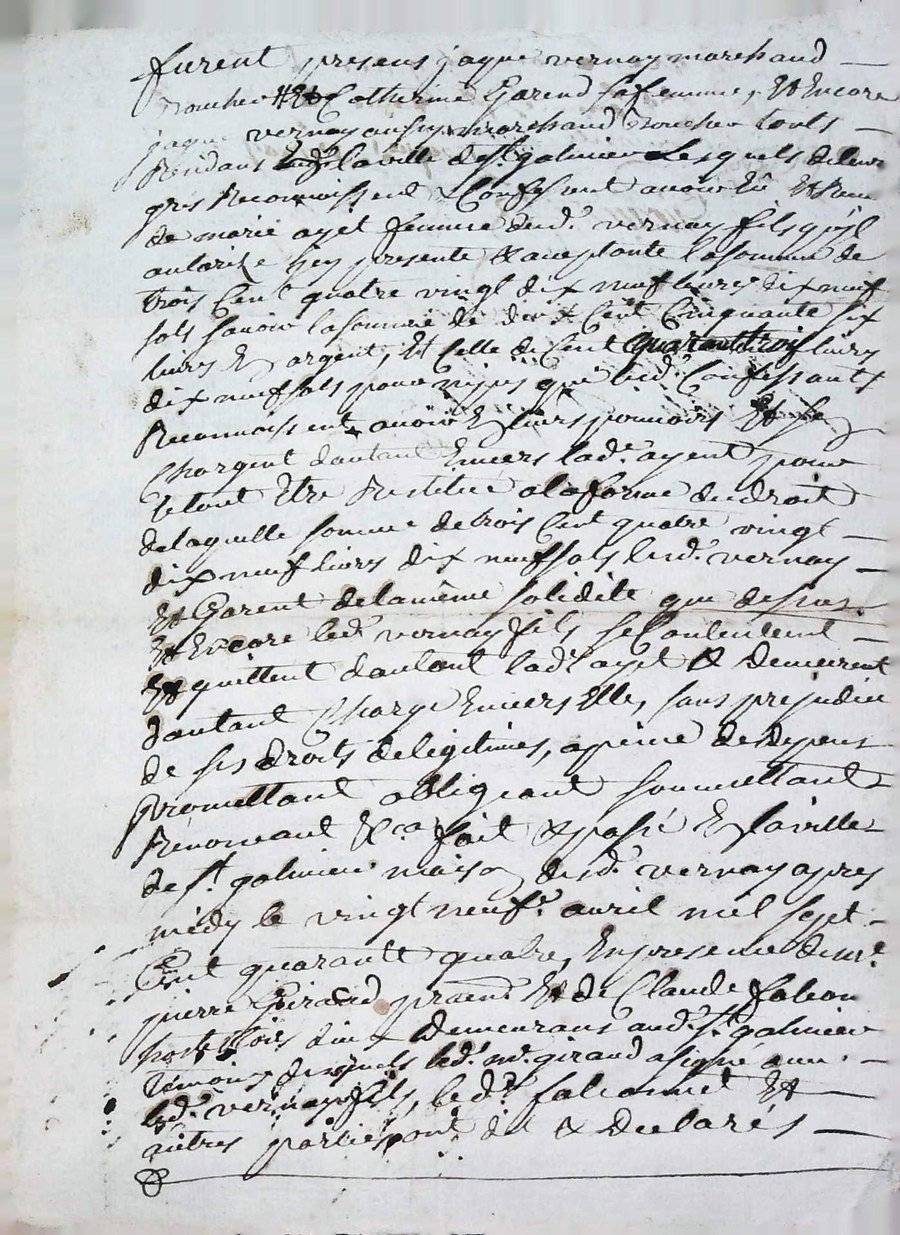 furent presens jaque vernay marchand
Boucher Et Catherine Garend sa femme, Et Encore
jaque vernay aussy marchand Boucher touts
Residans la ville de st galmier Lesquels de leur
gres Reconnoissent Confessent avoir Eu Et Receu
de marie ayel femme dud. vernay fils qu'il
autorise icy presente & acceptante la somme de
trois Cent quatre vingt dix neuf livres dix neuf
sols savoir la somme de deux Cent Cinquante six
livres En argent, Et Celle de Cent quarante trois livres
dix neuf sols pour nipes que lesd. Confessants
Reconnoissent avoir En leurs pouvoirs Et se
Chargent d'autant Envers lad. ayel pour
le tout Etre Restitué a la forme du droit
de laquelle somme de trois Cent quatre vingt
dix neuf livres dix neuf sols lesd. vernay
Et Garent de la même solidité que dessus
Et Encore led. vernay fils se Contentent
Et quittent d'autant lad. ayel & demeurent
d'autant Chargé Envers Elle, sans prejudice
de ses droits de legitimes, a peine de depens
promettant obligeant soumettant
Renonceant &ca fait & passé En la ville
de st galmier maison dud. vernay apres
midy le vingt neuf. avril mil sept
Cent quarante quatre, En presence de mr.
pierre Girard pratn. Et de Claude falcon
demeurans aud. st. galmier
temoins desquels led. mr. girard a signé avec
led. vernay fils, led. falconnet Et
autres parties ont dit & declarés